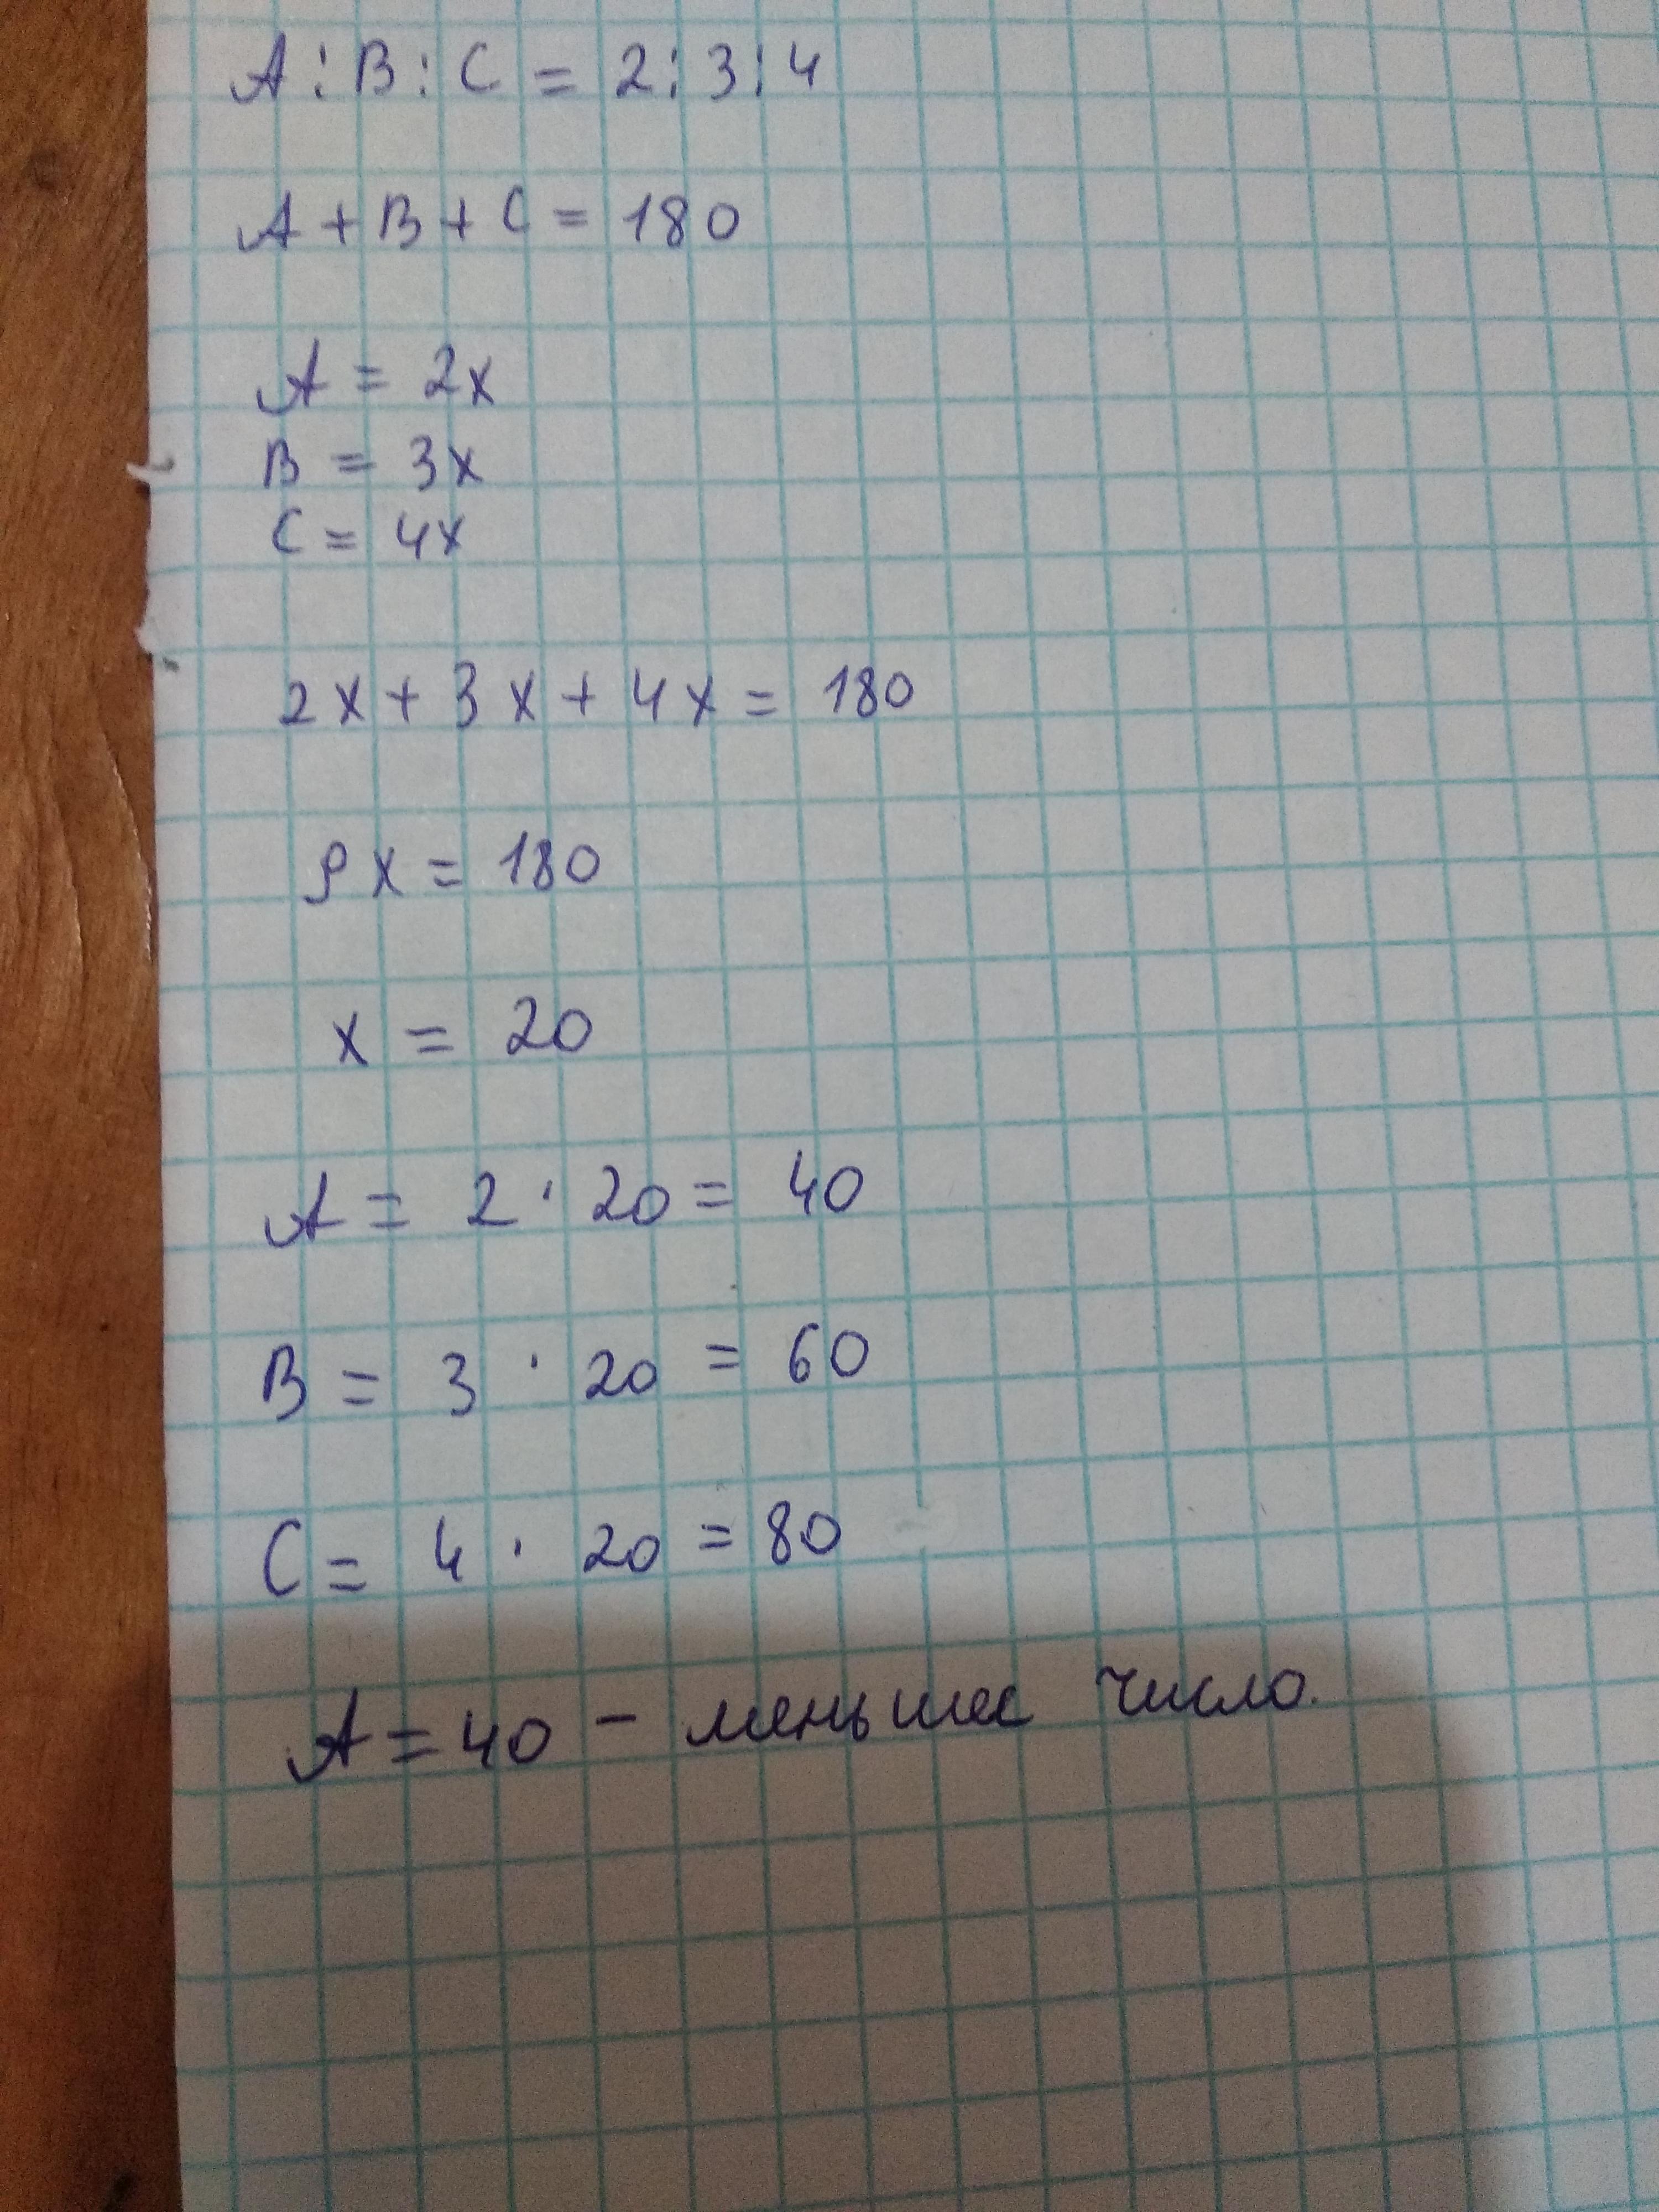 A : B : C = 2 : 3 : 4
A + B + C = 180
A = 2x
B = 3x
C = 4x
2x + 3x + 4x = 180
9x = 180
x = 20
A = 2 · 20 = 40
B = 3 · 20 = 60
C = 4 · 20 = 80
A = 40 - меньшее число.